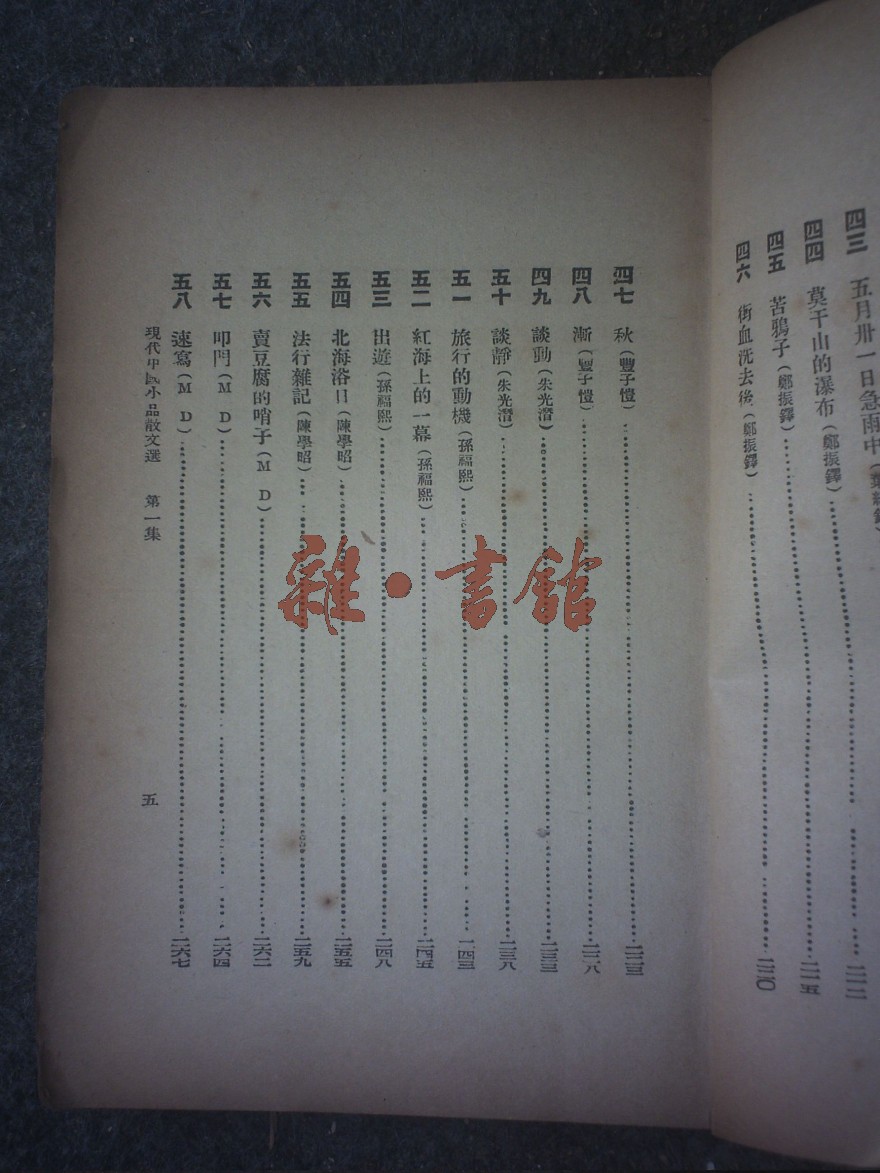 四三 五月卅一日急雨中(葉紹鈞)
四四 莫干山的瀑布(鄭振鐸)……二一五
四五 苦鴉子(鄭振鐸)
四六 街血洗去後(鄭振鐸)……二二〇
四七 秋(豐子愷)……二二三
四八 漸(豐子愷)……二二八
四九 談動(朱光潛)……二三三
五十 談靜(朱光潛)……二三八
五一 旅行的動機(孫福熙)……二四三
五二 紅海上的一幕(孫福熙)……二四五
五三 出遊(孫福熙)……二四八
五四 北海浴日(陳學昭)……二五五
五五 法行雜記(陳學昭)……二五九
五六 賣豆腐的哨子(M D)……二六二
五七 叩門(M D)……二六四
五八 速寫(M D)……二六七
現代中國小品散文選 第一集
五
雜·書館